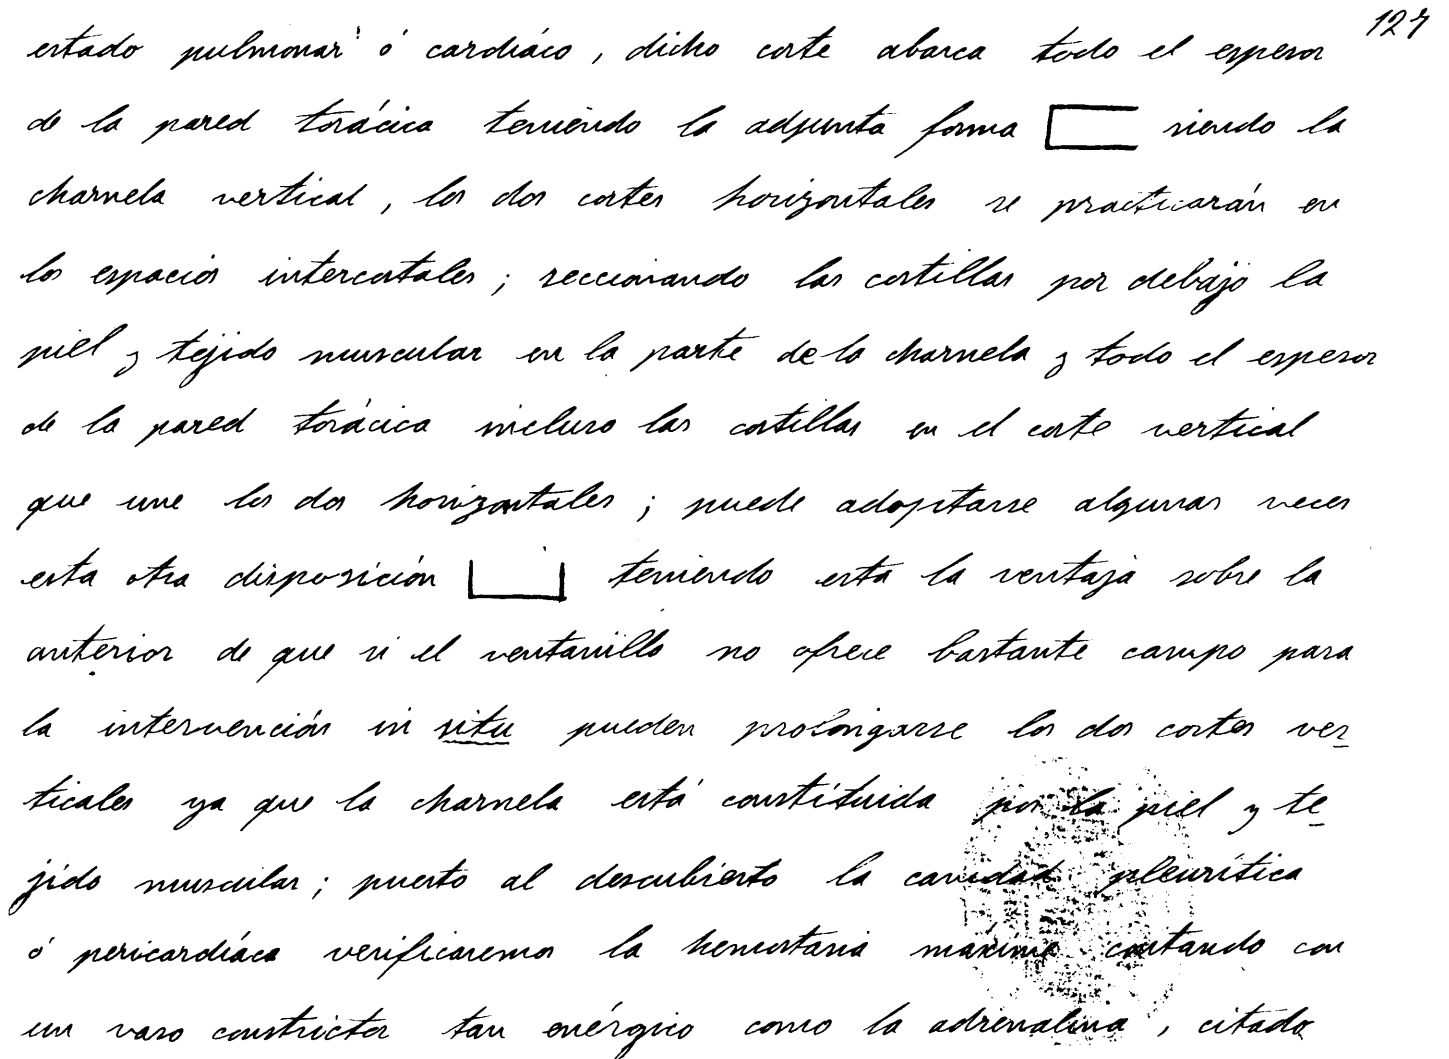 127
estado pulmonar ó cardiáco, dicho corte abarca todo el espesor
de la pared torácica teniendo la adjunta forma siendo la
charnela vertical, los dos cortes horizontales se practicarán en
los espacios intercostales; seccionando las costillas por debajo la
piel y tejido muscular en la parte de la charnela y todo el espesor
de la pared torácica incluso las costillas en el corte vertical
que une los dos horizontales; puede adoptarse algunas veces
esta otra disposición teniendo esta la ventaja sobre la
anterior de que si el ventanillo no ofrece bastante campo para
la intervención in situ pueden prolongarse los dos cortes ver-
ticales ya que la charnela está constituida por la piel y te-
jido muscular; puesto al descubierto la cavidad pleurítica
ó pericardíaca verificaremos la hemostasia máxime contando con
un vaso constrictor tan enérgico como la adrenalina, citado